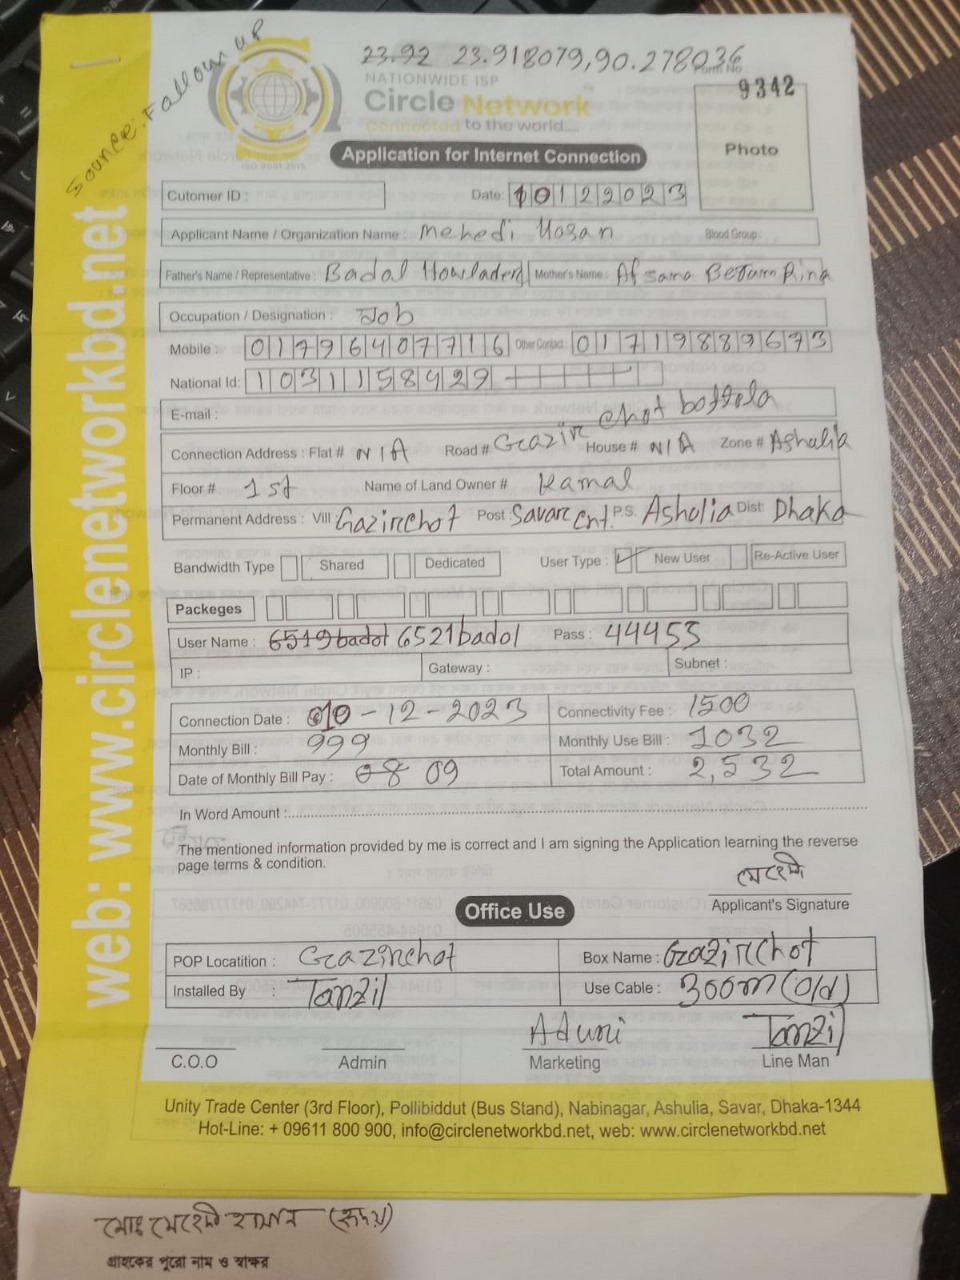 Source: Follow up
23.92 23.918079,90.278036
Form No
9342
NATIONWIDE ISP
Circle Network
Connected to the world...
ISO 9001:2015
Photo
Application for Internet Connection
Cutomer ID : Date: 10122023
Applicant Name / Organization Name : Mehedi Hasan Blood Group:
Father's Name / Representative : Badal Howlader Mother's Name : Afsana Begum Rina
Occupation / Designation : Job
Mobile : 01796407716 Other Contact 01719889673
National Id: 1031158429
E-mail :
Connection Address : Flat # N/A Road # Gazirchot bottola House # N/A Zone # Ashulia
Floor # 1st Name of Land Owner # Kamal
Permanent Address : Vill Gazirchot Post Savar Cnt. P.S. Ashulia Dist: Dhaka
Bandwidth Type Shared Dedicated User Type : New User Re-Active User
Packeges
User Name : 6519badol 6521badol Pass : 44455
IP : Gateway : Subnet :
Connection Date : 010-12-2023 Connectivity Fee : 1500
Monthly Bill : 999 Monthly Use Bill : 1032
Date of Monthly Bill Pay : 08 09 Total Amount : 2,532
In Word Amount :
The mentioned information provided by me is correct and I am signing the Application learning the reverse
page terms & condition.
মেহেদী
Applicant's Signature
Office Use
POP Locatition : Gazirchot Box Name : Gazirchot
Installed By : Tanzil Use Cable : 300m (old)
Tanzil
C.O.O Admin Marketing Line Man
Unity Trade Center (3rd Floor), Pollibiddut (Bus Stand), Nabinagar, Ashulia, Savar, Dhaka-1344
Hot-Line: + 09611 800 900, info@circlenetworkbd.net, web: www.circlenetworkbd.net
web: www.circlenetworkbd.net
মোঃ মেহেদী হাসান (হৃদয়)
গ্রাহকের পুরো নাম ও স্বাক্ষর